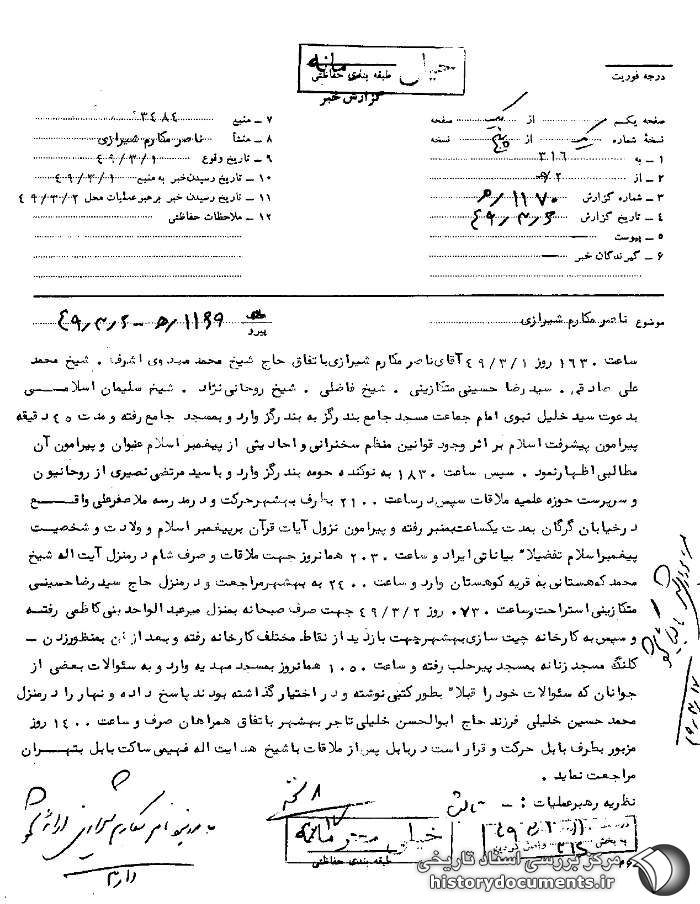 خیلی محرمانه
طبقه بندی حفاظتی
گزارش خبر
درجه فوریت
صفحه یکم از یک صفحه
نسخهٔ شماره یک از نسخه
۱ ـ به ۳۱۶
۲ ـ از
۳ ـ شماره گزارش ۱۱۷۰/ه
۴ ـ تاریخ گزارش ۴۹/۳/۶
۵ ـ پیوست
۶ ـ گیرندگان خبر
۷ ـ منبع ۳۴۸۴
۸ ـ منشأ ناصر مکارم شیرازی
۹ ـ تاریخ وقوع ۴۹/۳/۱
۱۰ ـ تاریخ رسیدن خبر به منبع ۴۹/۳/۱
۱۱ ـ تاریخ رسیدن خبر برهبر عملیات محل ۴۹/۳/۲
۱۲ ـ ملاحظات حفاظتی
موضوع ناصر مکارم شیرازی
پیرو ۱۱۶۹/ه - ۴۹/۳/۶
ساعت ۱۶۳۰ روز ۴۹/۳/۱ آقای ناصر مکارم شیرازی باتفاق حاج شیخ محمد مهدوی اشرف . شیخ محمد
علی صادقی . سید رضا حسینی متکازینی . شیخ فاضلی . شیخ روحانی نژاد . شیخ سلیمان اسلامی
بدعوت سید خلیل نبوی امام جماعت مسجد جامع بندر گز به بندر گز وارد و بمسجد جامع رفته و مدت ۴۵ دقیقه
پیرامون پیشرفت اسلام بر اثر وجود قوانین منظم سخنرانی و احادیثی از پیغمبر اسلام عنوان و پیرامون آن
مطالبی اظهار نمود . سپس ساعت ۱۸۳۰ به نوکنده حومه بندر گز وارد و با سید مرتضی نصیری از روحانیون
و سرپرست حوزه علمیه ملاقات سپس در ساعت ۲۱۰۰ بطرف بهشهر حرکت و در مدرسه ملا صفرعلی واقع
در خیابان گرگان بمدت یکساعت بمنبر رفته و پیرامون نزول آیات قرآن بر پیغمبر اسلام و ولادت و شخصیت
پیغمبر اسلام تفضیلا" بیاناتی ایراد و ساعت ۲۰۳۰ همانروز جهت ملاقات و صرف شام در منزل آیت اله شیخ
محمد کوهستانی به قریه کوهستان وارد و ساعت ۲۴۰۰ به بهشهر مراجعت و در منزل حاج سید رضا حسینی
متکازینی استراحت و ساعت ۰۷۳۰ روز ۴۹/۳/۲ جهت صرف صبحانه بمنزل میر عبد الواحد بنی کاظمی رفته
و سپس به کارخانه چیت سازی بهشهر جهت بازدید از نقاط مختلف کارخانه رفته و بعد از آن بمنظور زدن ـ
کلنگ مسجد زنانه بمسجد پیر حلب رفته و ساعت ۱۰۵۰ همانروز بمسجد مهدیه وارد و به سئوالات بعضی از
جوانان که سئوالات خود را قبلا" بطور کتبی نوشته و در اختیار گذاشته بودند پاسخ داده و نهار را در منزل
محمد حسین خلیلی فرزند حاج ابوالحسن خلیلی تاجر بهشهر باتفاق همراهان صرف و ساعت ۱۴۰۰ روز
مزبور بطرف بابل حرکت و قرار است در بابل پس از ملاقات با شیخ هدایت اله فهیمی ساکت بابل بتهران
مراجعت نماید .
نظریه رهبر عملیات : ـ
خیلی محرمانه
طبقه بندی حفاظتی
مرکز بررسی اسناد تاریخی
historydocuments.ir